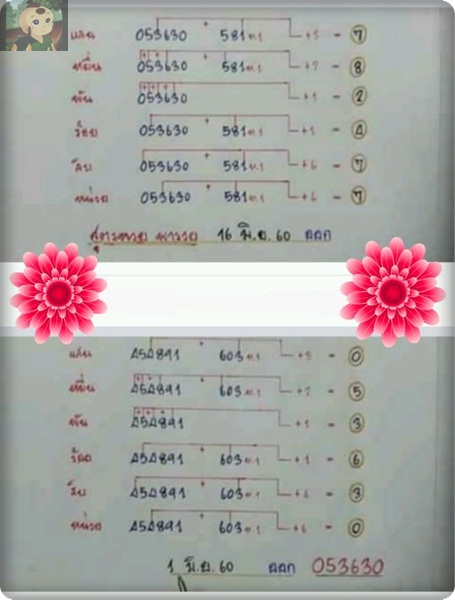 แสน 053630 + 581 ต.1 +3 = 7
หมื่น 053630 581 ต.1 +2 = 8
พัน 053630 +1 = 2
ร้อย 053630 + 581 ต.1 +1 = 4
สิบ 053630 + 581 ต.1 +6 = 7
หน่วย 053630 + 581 ต.1 +6 = 7
สูตรหวย พารวย 16 มิ.ย. 60 ออก
แสน 454891 + 603 ต.1 +3 = 0
หมื่น 454891 603 ต.1 +2 = 5
พัน 454891 +1 = 3
ร้อย 454891 + 603 ต.1 +1 = 6
สิบ 454891 + 603 ต.1 +6 = 3
หน่วย 454891 + 603 ต.1 +6 = 0
1 มิ.ย. 60 ออก 053630